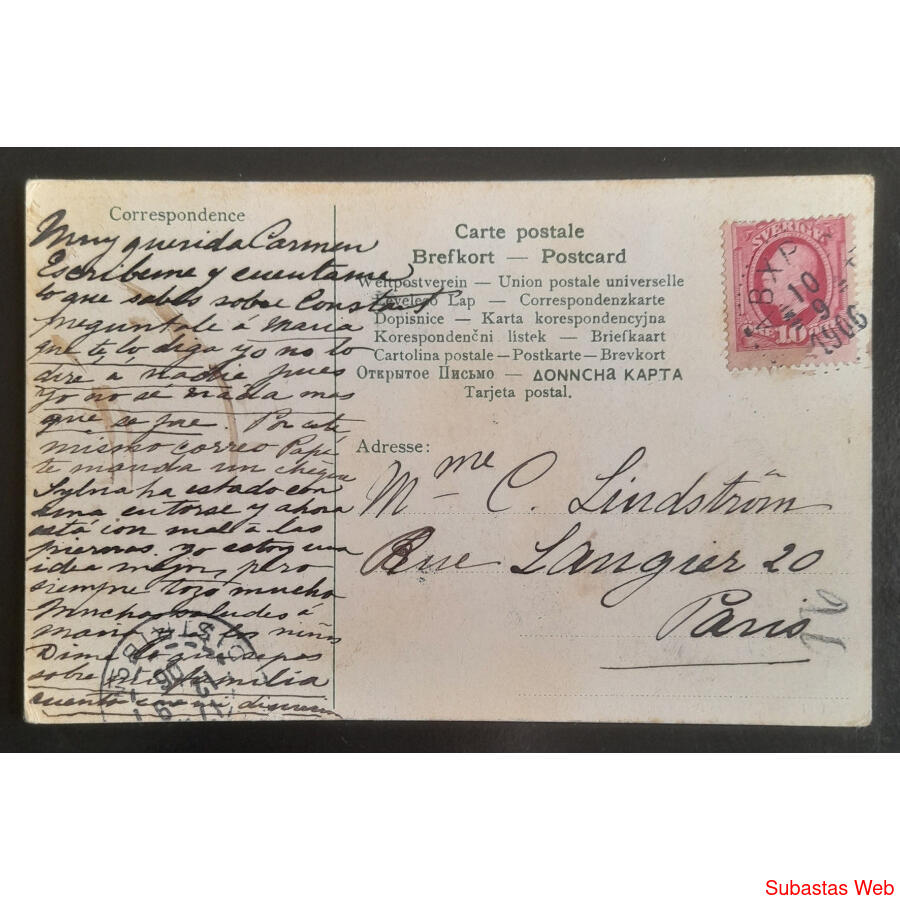 Correspondence
Muy querida Carmen
Escribeme y cuentame
lo que sabes sobre Constant
preguntale á Maria
que te lo diga yo no lo
dire a nadie pues
yo no sé nada mas
que se fue. Por este
mismo correo Papá
te manda un cheque
Sylvia ha estado con
una y ahora
está con mal á las
piernas. Yo estoy una
idea mejor, pero
siempre toso mucho
Muchos saludes á
Maria y a los niños
Dime lo que sepas
sobre mi familia
cuenta con mi
Carte postale
Brefkort — Postcard
Weltpostverein — Union postale universelle
Levelező Lap — Correspondenzkarte
Dopisnice — Karta korespondencyjna
Korespondenční listek — Briefkaart
Cartolina postale - Postkarte - Brevkort
Открытое Письмо — ΔΟΝΝCHа ΚΑΡΤΑ
Tarjeta postal.
SVERIGE
10
PKXP
10
9
1906
Adresse:
Mme C. Lindström
Rue Langier 20
Paris
Subastas Web